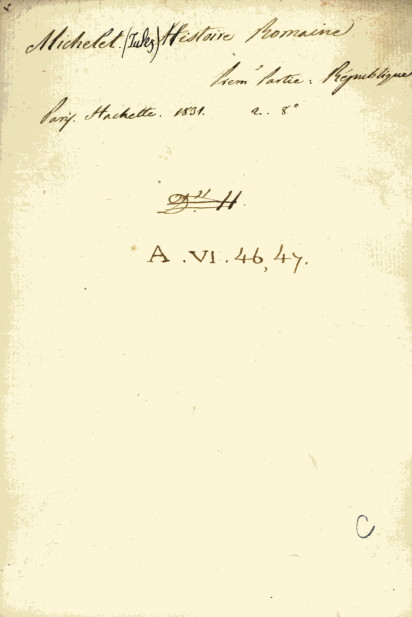 Michelet. (Jules) Histoire Romaine
Prem.e Partie: République
Paris. Hachette. 1831. 2. 8°
H.
A. VI. 46, 47.
C